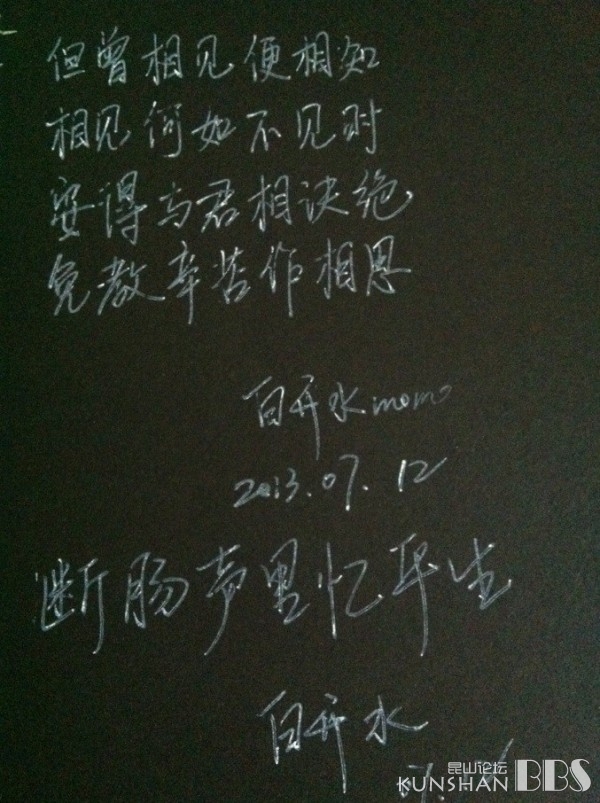 但曾相见便相知
相见何如不见时
安得与君相决绝
免教辛苦作相思
白开水momo
2013.07.12
断肠声里忆平生
白开水
昆山论坛
KUNSHAN BBS